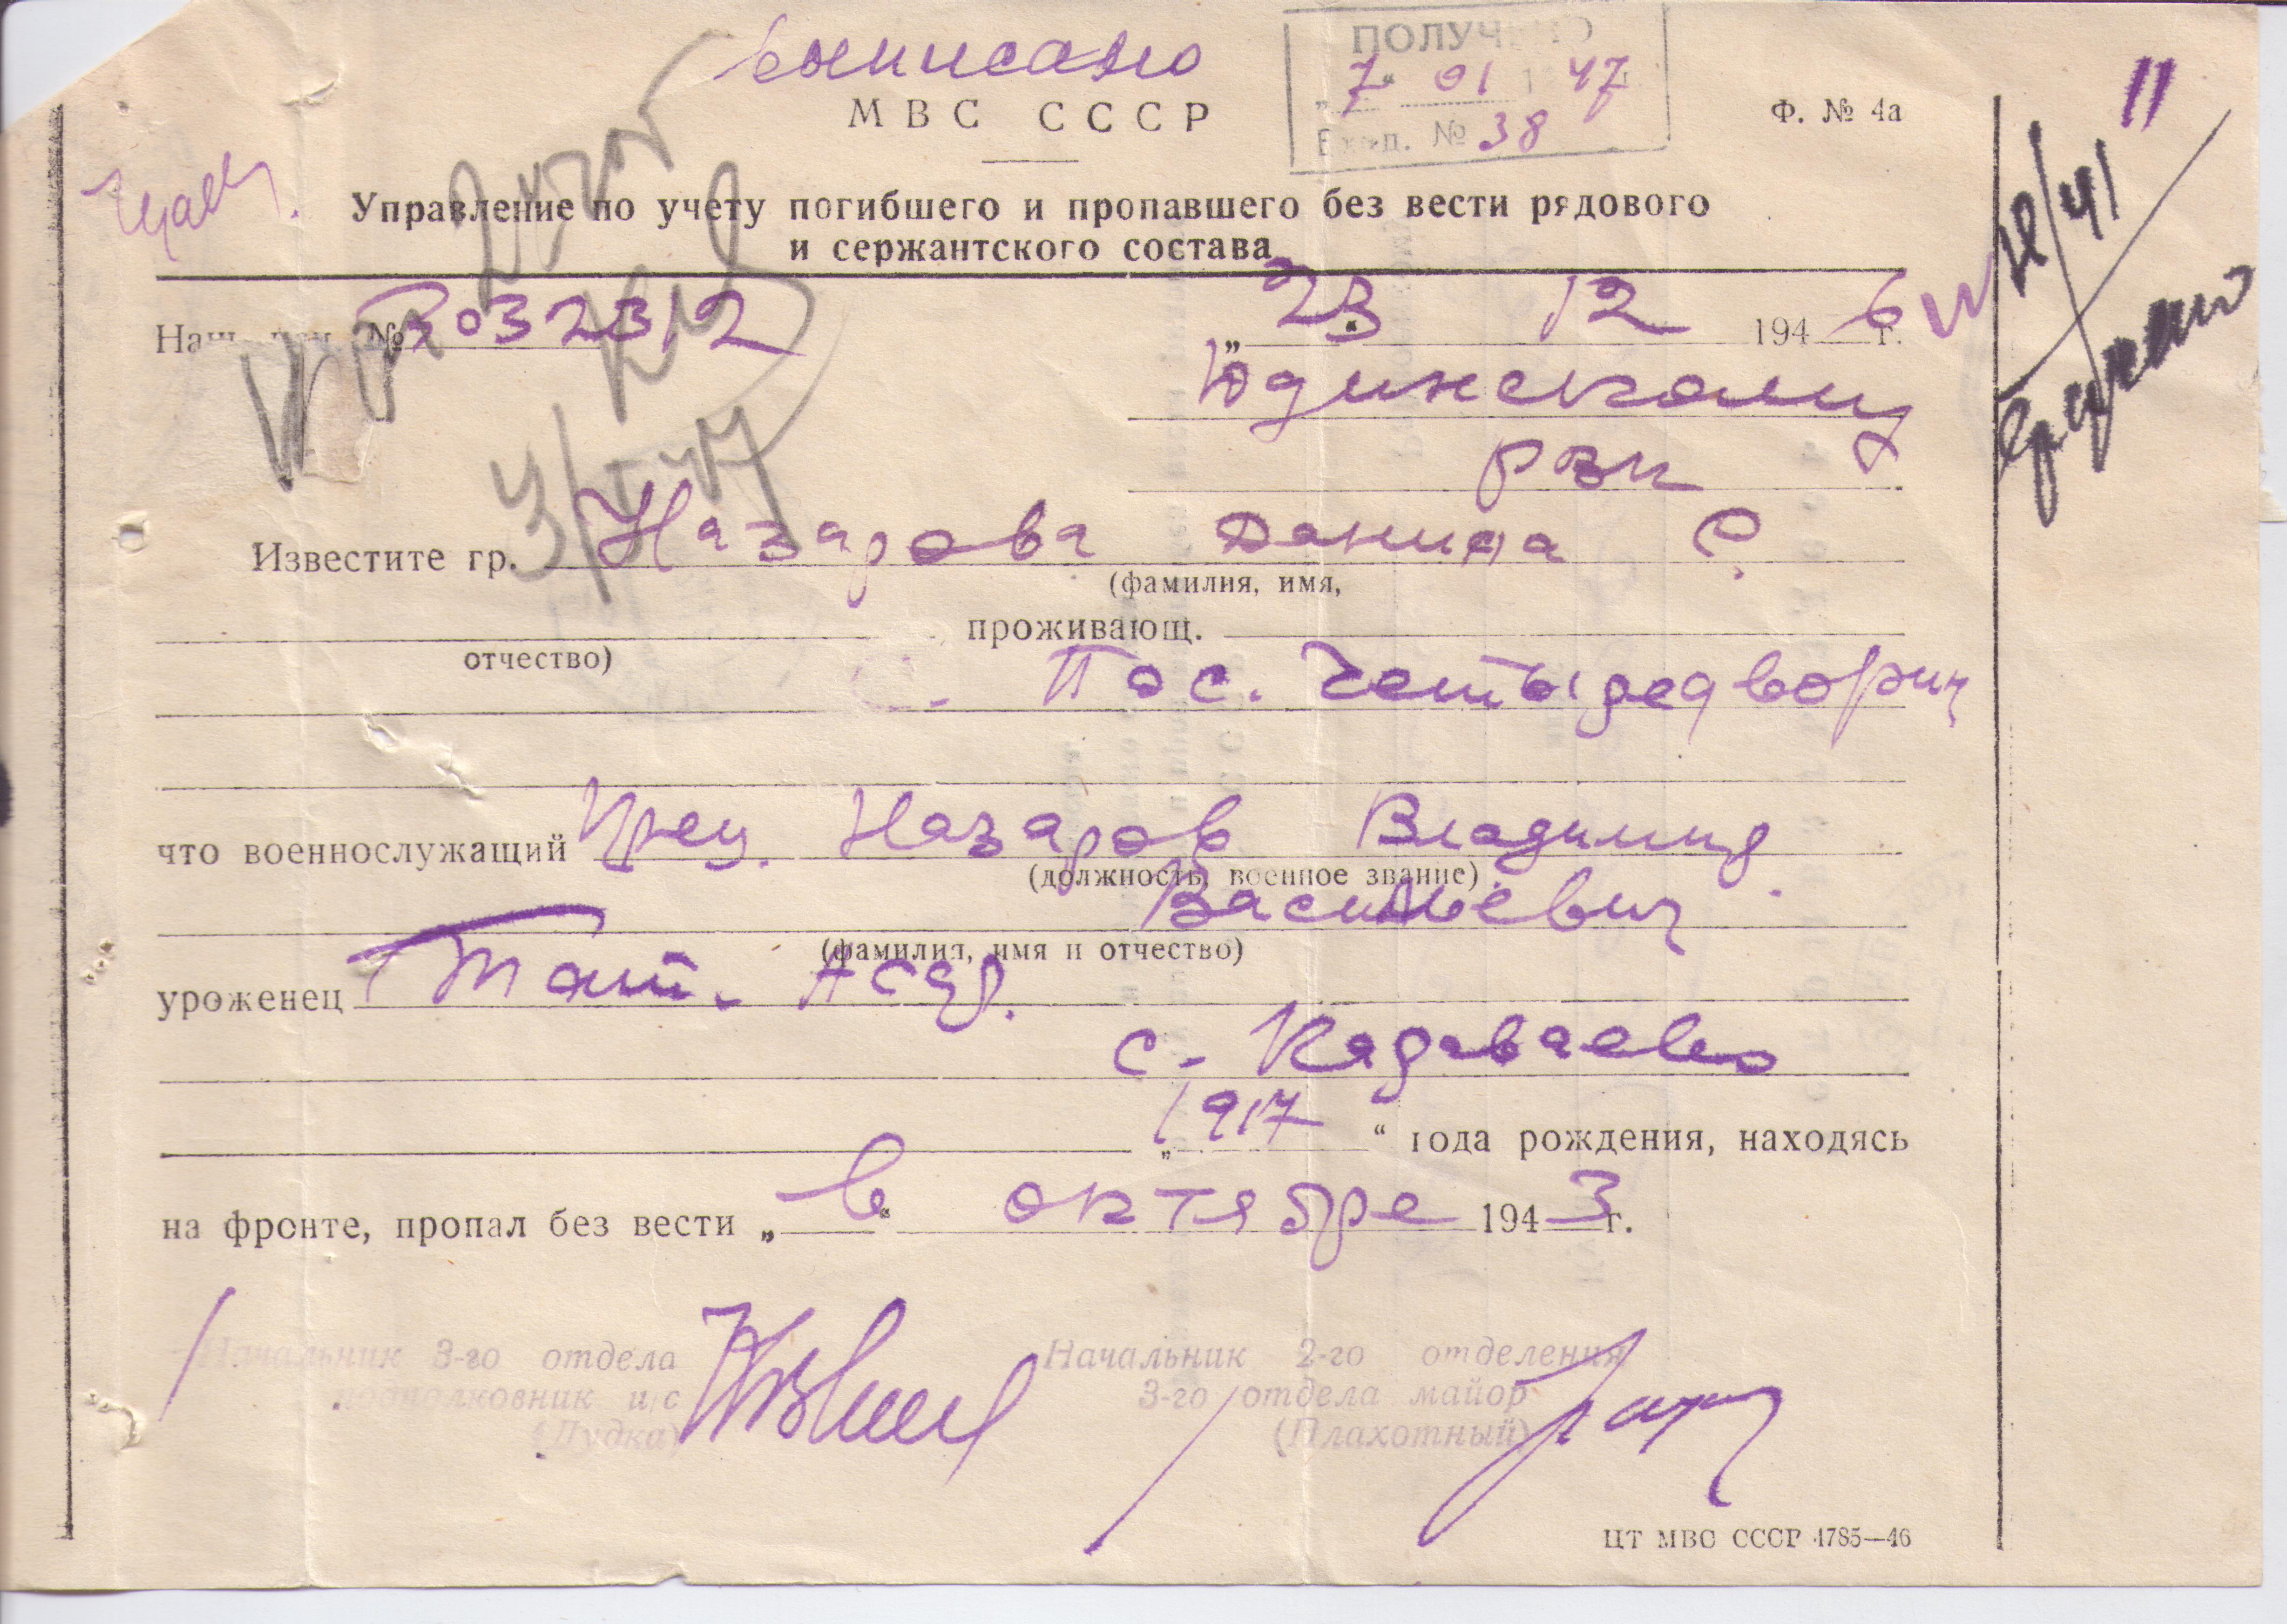 выписано
ПОЛУЧЕНО
"7" 01 1947
Входп. № 38
МВС СССР
Ф. № 4а
11
Управление по учету погибшего и пропавшего без вести рядового
и сержантского состава
№ 3032312
„23" 12 1946 г.
Юдинскому
рвк
Известите гр. Назарова Данила С.
(фамилия, имя,
проживающ.
отчество)
Пос. Четыредворич
что военнослужащий Назаров Владимир
(должность, военное звание)
Васильевич
(фамилия, имя и отчество)
уроженец Тат. АССР.
с.
„1917" года рождения, находясь
на фронте, пропал без вести „в" октябре 1943 г.
Начальник 3-го отдела
подполковник и/с
(Лудка)
Начальник 2-го отделения
3-го отдела майор
(Плахотный)
ЦТ МВС СССР 4785—46